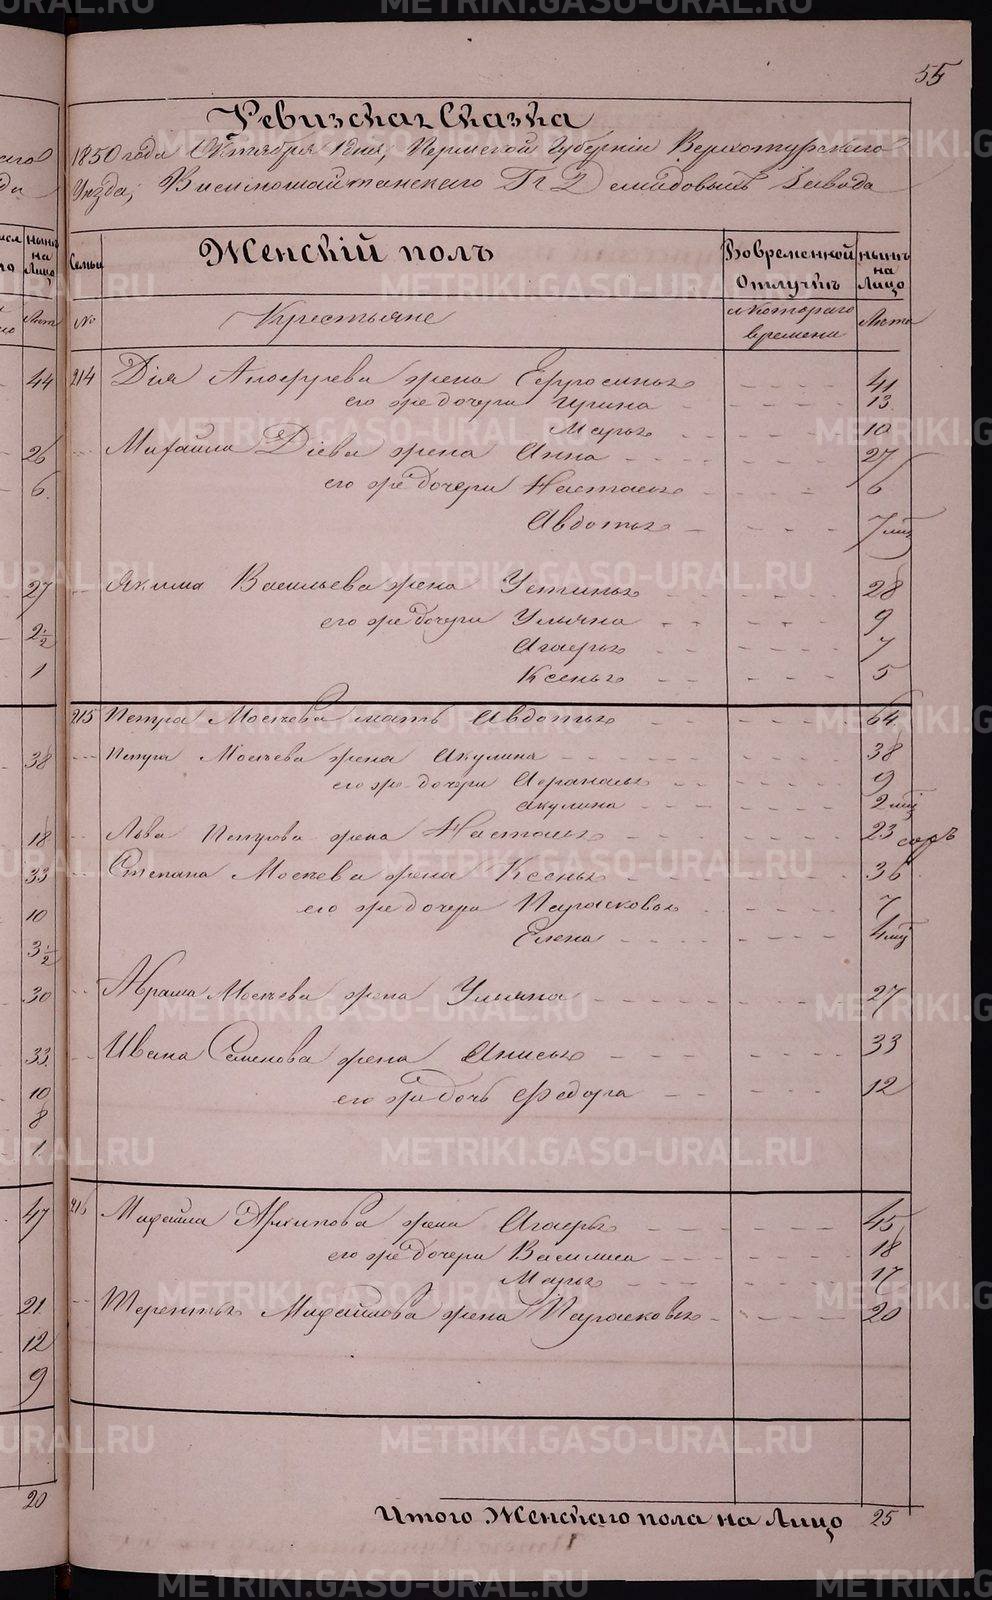 55
Ревизская Сказка
1850 года Октября дня, Пермской Губерніи Верхотурскаго
Уѣзда, Висимошайтанскаго Гг Демидовыхъ Завода
Семьи Женскій полъ Во временной Отлучкѣ нынѣ на Лицо
№ Крестьяне съ котораго времени Лѣта
44 214 Дія женa Ефросинья 41
его же дочери Ирина 13
Марья 10
26 Михайла Діева жена Анна 27
6 его же дочери Настасья 6
Авдотья 7 мѣ
27 Якима Васильева жена Устинья 28
2½ его же дочери Ульяна 9
Агафья 7
1 Ксенья 5
215 Петра Мосѣева мать Авдотья 64
38 Петра Мосѣева жена Акулина 38
его же дочери Афанасья 9
Акулина 2 мѣ
18 Льва Петрова жена Настасья 23
33 Степана Мосѣева жена Ксенья 36
10 его же дочери Парасковья 7
3½ Елена 4 мѣ
30 Абрама Мосѣева жена Ульяна 27
33 Ивана Семенова жена Анисья 33
10 его же дочь Федора 12
8
1
47 216 Михайла Архипова жена Агафья 45
его же дочери Василиса 18
Марья 17
21 Терентья Михайлова жена Парасковья 20
12
9
20 Итого Женскаго пола на Лицо 25
METRIKI.GASO-URAL.RU